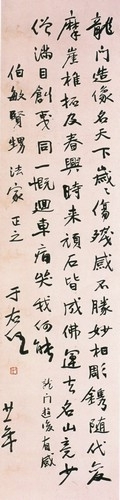 龍门造像名天下歲〻傷殘感不勝妙相彫鐫随代
摩崖椎拓及春興時来頑石皆成佛運去名山竟少
僧滿目創夷同一慨迴車痛哭我何能
龙门遊後有感
伯敏賢甥 法家正之
于右任